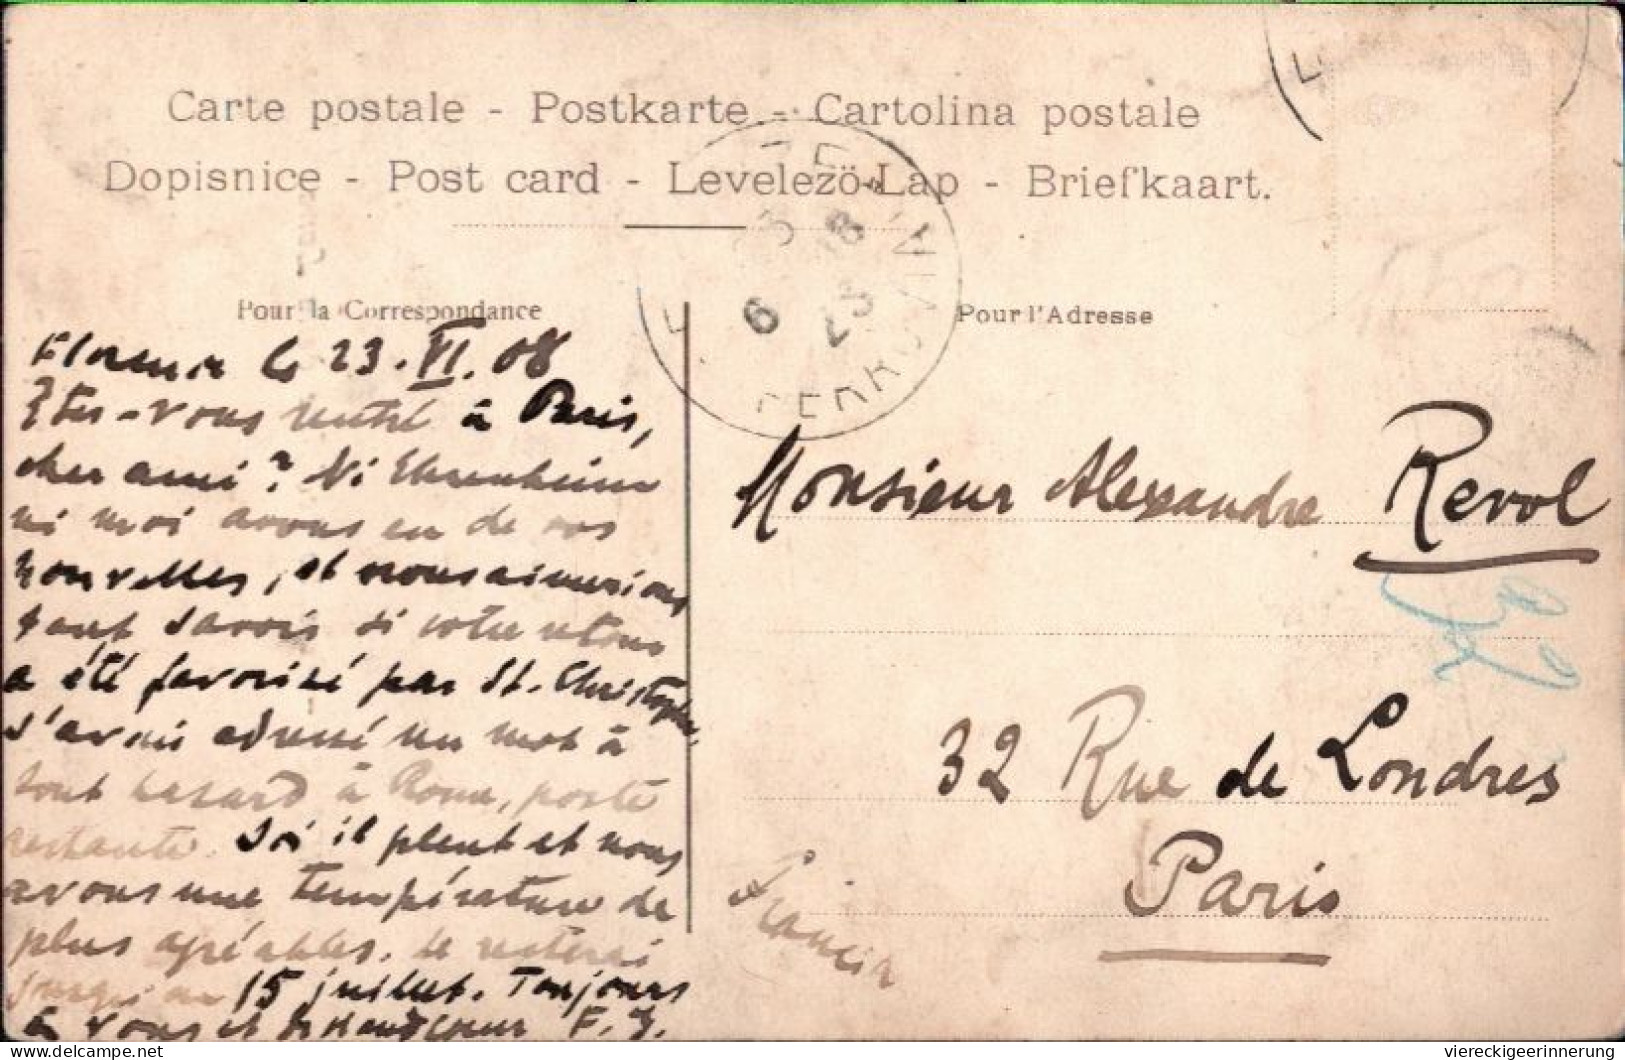 Carte postale - Postkarte - Cartolina postale
Dopisnice - Post card - Levelezö-Lap - Briefkaart.
Pour la Correspondance
Pour l'Adresse
6 23
Florence le 23.VI.08
Êtes-vous rentré à Paris,
cher ami? Ni Ehrenheim
ni moi avons eu de vos
nouvelles, et nous aimerions
tant savoir si votre retour
a été favorisé par St. Christophe.
J'avais adressé un mot à
tout hasard à Rome, poste
restante. Ici il pleut et nous
avons une température de
plus agréables. Je resterai
jusqu'au 15 juillet. Toujours
à vous et de
Monsieur Alexandre Revol
32 Rue de Londres
Paris
viereckigeerinnerung